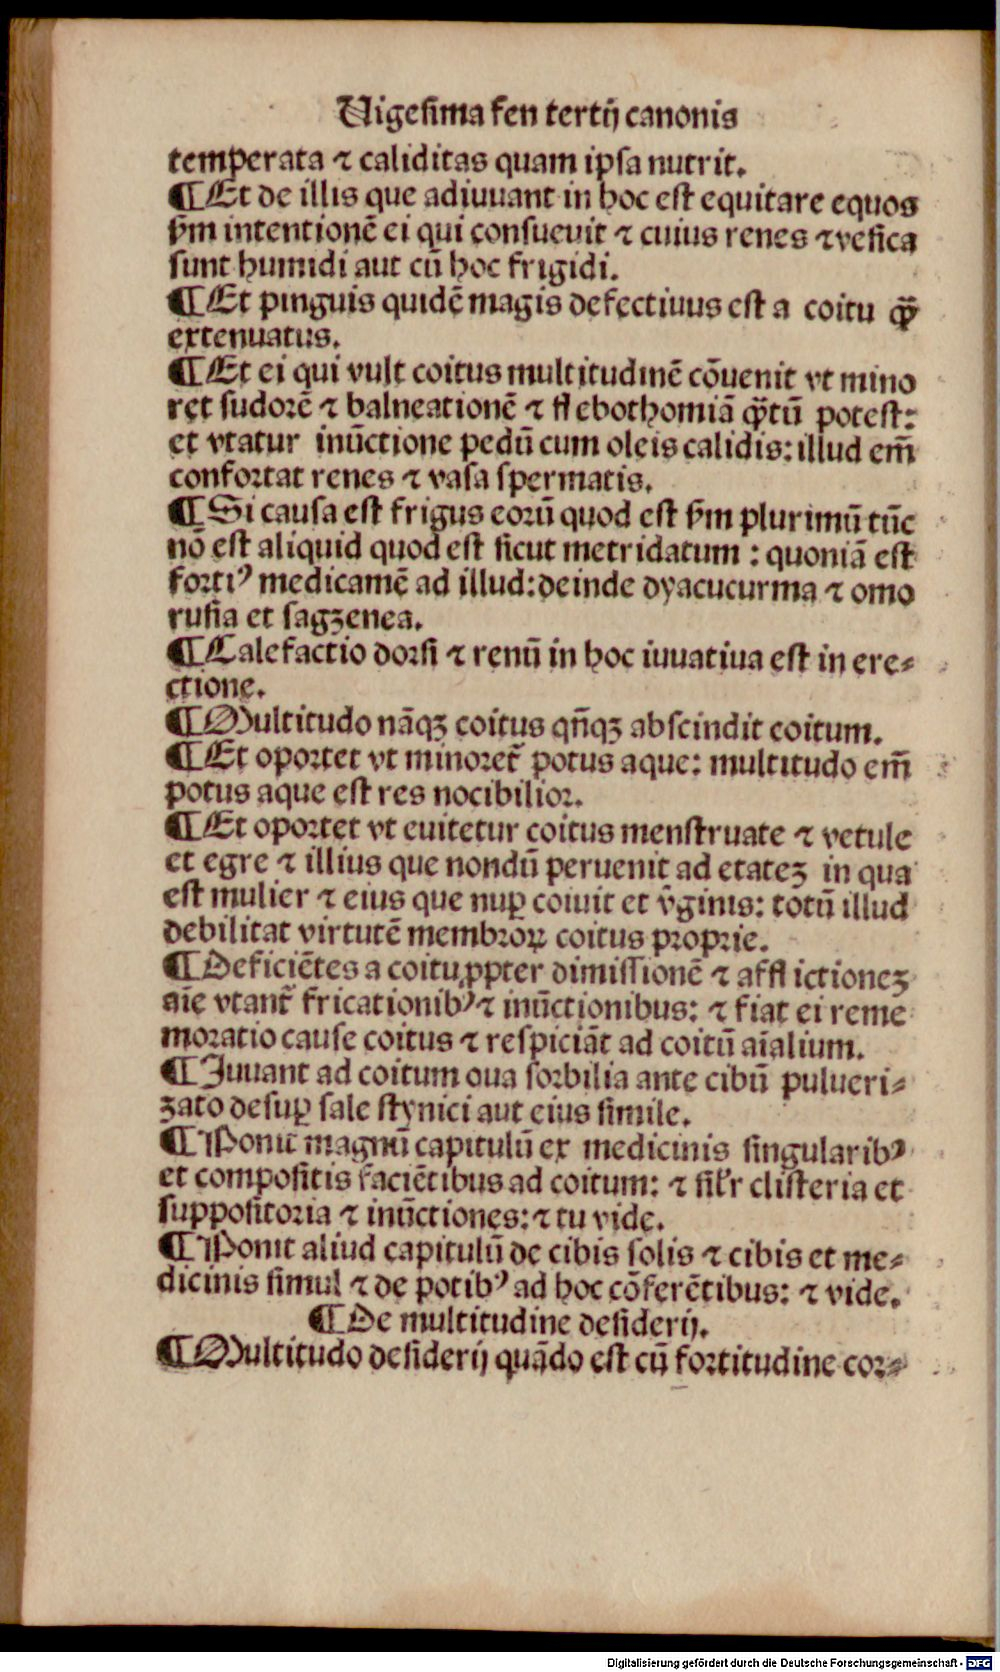 Uigesima fen tertij canonis
temperata ⁊ caliditas quam ipsa nutrit.
¶Et de illis que adiuuant in hoc est equitare equos
ẜm intentionē ei qui consueuit ⁊ cuius renes ⁊vesica
sunt humidi aut cū hoc frigidi.
¶Et pinguis quidē magis defectiuus est a coitu ꝙ̃
extenuatus.
¶Et ei qui vult coitus multitudinē cōuenit vt mino
ret sudorē ⁊ balneationē ⁊ flebothomiā ꝙ̃tū potest:
et vtatur inūctione pedū cum oleis calidis: illud em̄
confortat renes ⁊ vasa spermatis.
¶Si causa est frigus eorū quod est ẜm plurimū tūc
nō est aliquid quod est sicut metridatum : quoniā est
fortiꝰ medicamē ad illud: deinde dyacucurma ⁊ omo
rusia et sagzenea.
¶Calefactio dorsi ⁊ renū in hoc iuuatiua est in ere⸗
ctione.
¶Multitudo nāqꝫ coitus qn̄qꝫ abscindit coitum.
¶Et oportet vt minoret̃ potus aque: multitudo em̄
potus aque est res nocibilior.
¶Et oportet vt euitetur coitus menstruate ⁊ vetule
et egre ⁊ illius que nondū peruenit ad etateꝫ in qua
est mulier ⁊ eius que nuꝑ coiuit et v̄ginis: totū illud
debilitat virtutē membroꝝ coitus proprie.
¶Deficiētes a coitu ꝓpter dimissionē ⁊ afflictioneꝫ
aīe vtant̃ fricationibꝰ ⁊ inūctionibus: ⁊ fiat ei reme
moratio cause coitus ⁊ respiciāt ad coitū aīalium.
¶Iuuant ad coitum oua sorbilia ante cibū pulueri⸗
zato desuꝑ sale stynici aut eius simile.
¶Ponit magnū capitulū ex medicinis singularibꝰ
et compositis faciētibus ad coitum: ⁊ sil̛r clisteria et
suppositoria ⁊ inūctiones: ⁊ tu vide.
¶Ponit aliud capitulū de cibis solis ⁊ cibis et me⸗
dicinis simul ⁊ de potibꝰ ad hoc cōferētibus: ⁊ vide.
¶De multitudine desiderij.
¶Multitudo desiderij quādo est cū fortitudine cor⸗
Digitalisierung gefördert durch die Deutsche Forschungsgemeinschaft - DFG